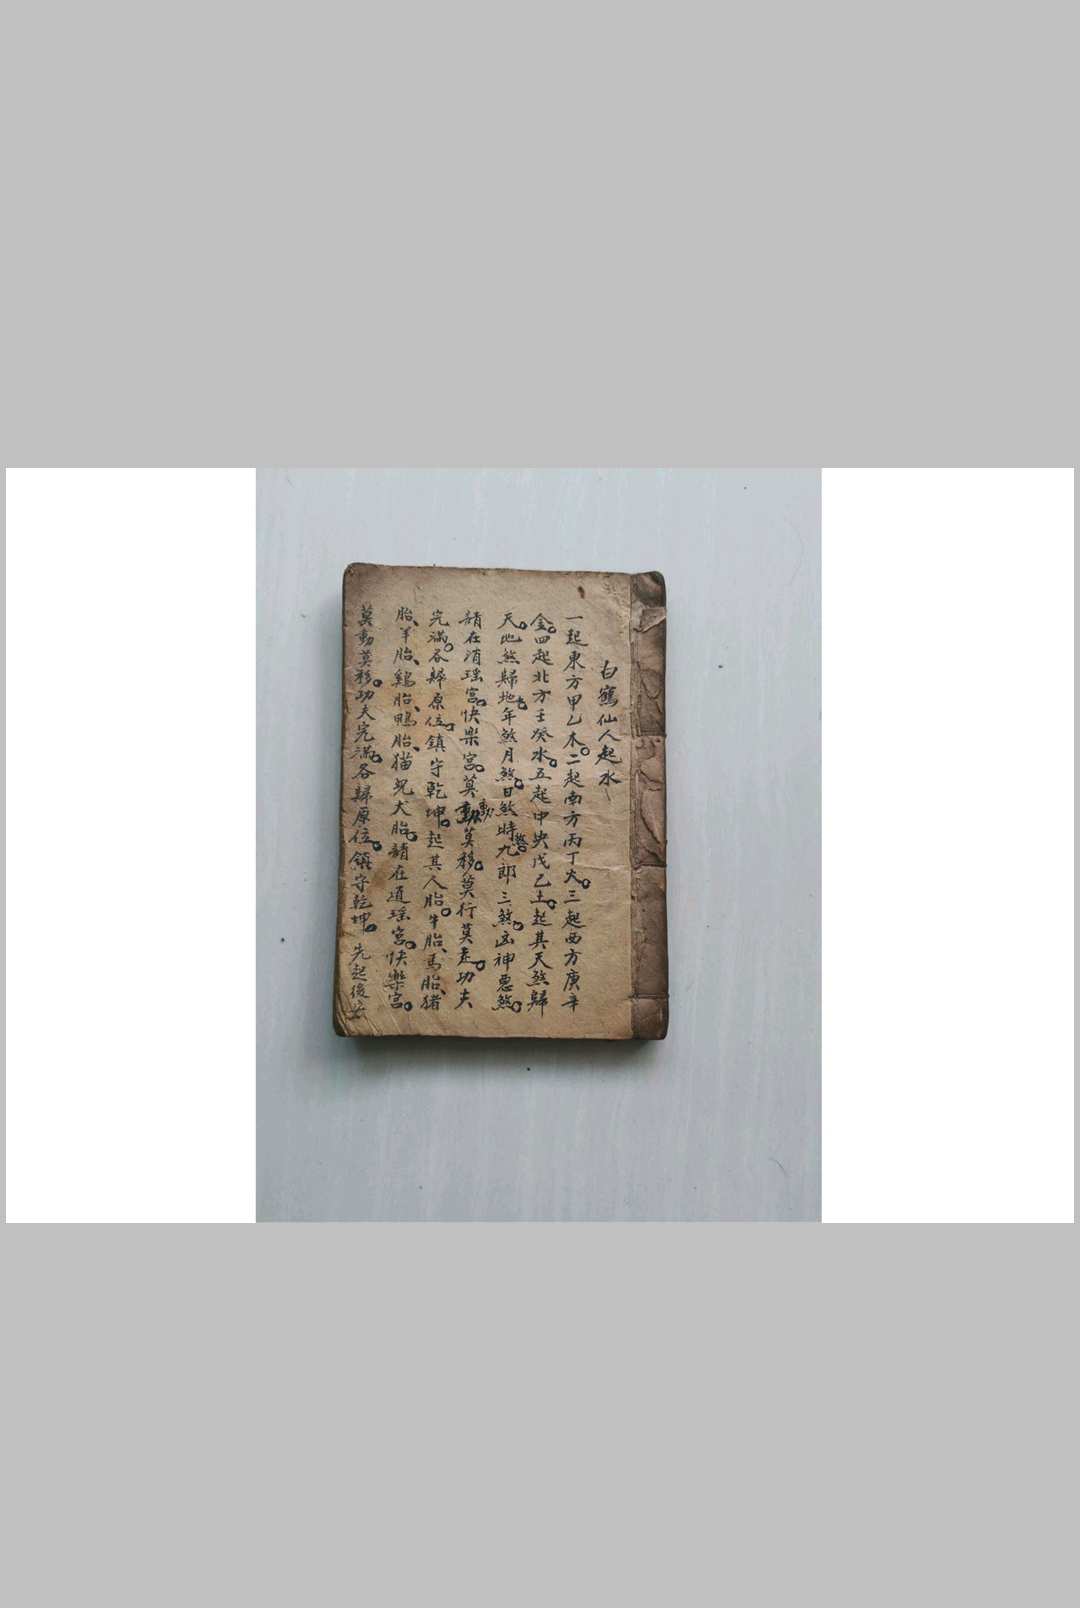 白鶴仙人起水
一起東方甲乙木。二起南方丙丁火。三起西方庚辛
金。四起北方壬癸水。五起中央戊己土。起其天煞歸
天。地煞歸地。年煞月煞。日煞時煞。九郎三煞。凶神惡煞。
請在逍瑶宮。快樂宮。莫動莫移。莫行莫走。功夫
完滿。各歸原位。鎮守乾坤。起其人胎。牛胎、馬胎、猪
胎、羊胎、鷄胎、鴨胎、猫兒犬胎。請在逍瑶宮。快樂宮。
莫動莫移。功夫完滿。各歸原位。鎮守乾坤。先起後安